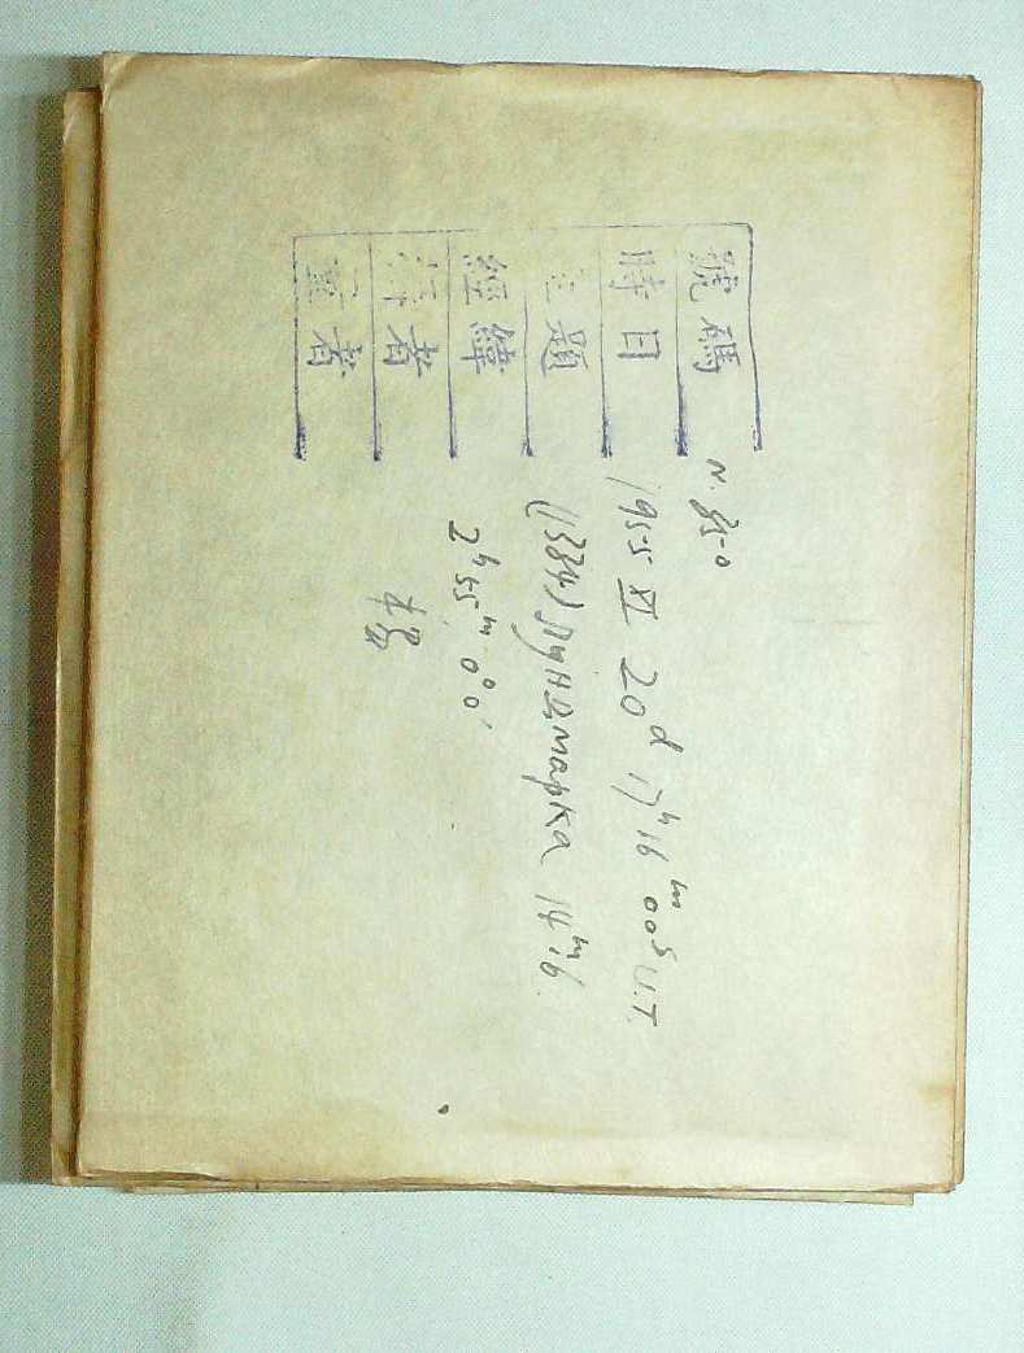 號碼 N. 850
時日 1955 XI 20d 17h 16m 00s U.T.
主題 (1384) Лундмарка 14m.6
經緯 2h 55m, 0° 0'
著者
著